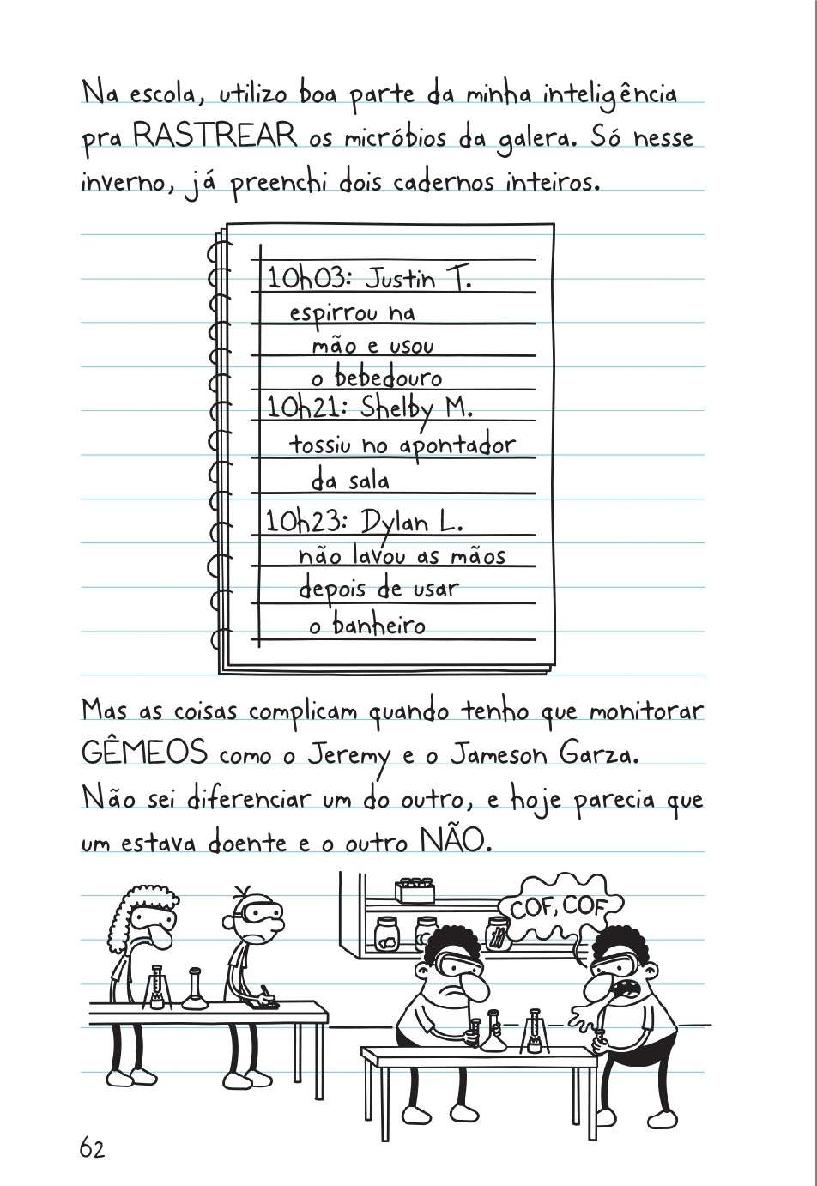 Na escola, utilizo boa parte da minha inteligência
pra RASTREAR os micróbios da galera. Só nesse
inverno, já preenchi dois cadernos inteiros.
10h03: Justin T.
espirrou na
mão e usou
o bebedouro
10h21: Shelby M.
tossiu no apontador
da sala
10h23: Dylan L.
não lavou as mãos
depois de usar
o banheiro
Mas as coisas complicam quando tenho que monitorar
GÊMEOS como o Jeremy e o Jameson Garza.
Não sei diferenciar um do outro, e hoje parecia que
um estava doente e o outro NÃO.
COF, COF
62